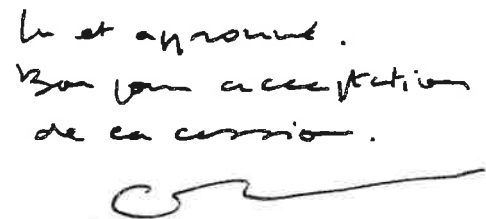 Lu et approuvé.
Bon pour acceptation
de la cession.